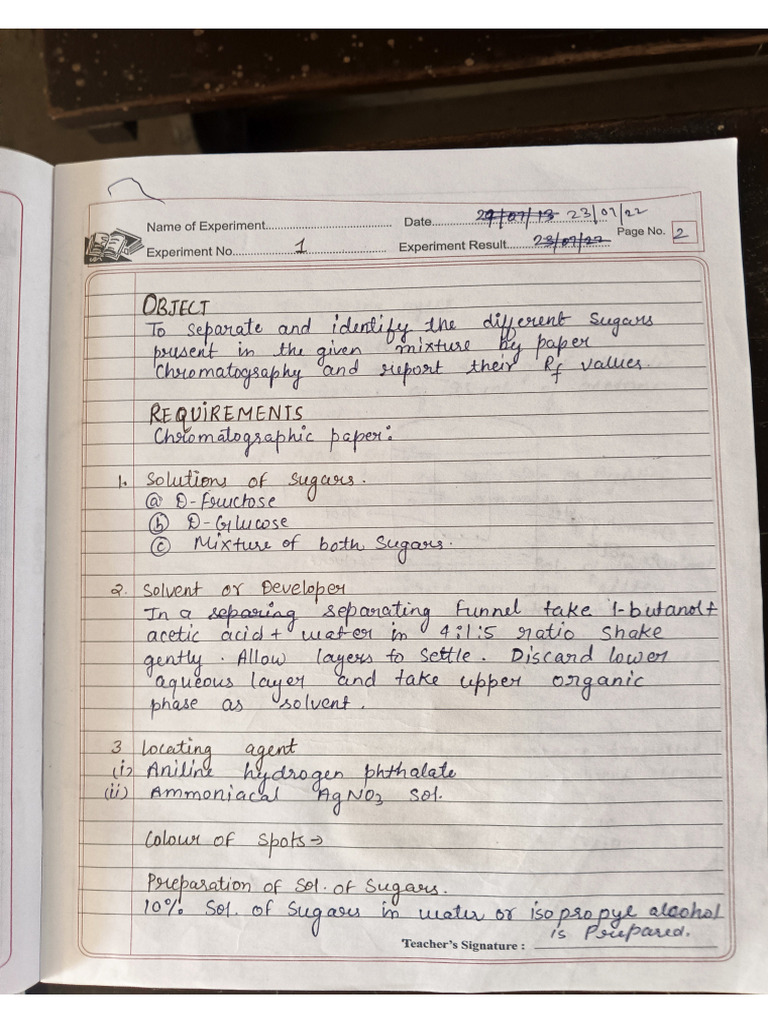 Name of Experiment.......... Date.......... 23/07/22
Experiment No.......... 1 .......... Experiment Result.......... 23/07/22 Page No. 2
OBJECT
To separate and identify the different sugars
present in the given mixture by paper
Chromatography and report their Rf values.
REQUIREMENTS
Chromatographic paper:
1. Solutions of sugars.
(a) D-fructose
(b) D-Glucose
(c) Mixture of both Sugars.
2. Solvent or Developer
In a separing separating funnel take 1-butanol+
acetic acid + water in 4:1:5 ratio shake
gently. Allow layers to settle. Discard lower
aqueous layer and take upper organic
phase as solvent.
3 Locating agent
(i) Aniline hydrogen phthalate
(ii) Ammoniacal AgNO3 Sol.
Colour of spots→
Preparation of Sol. of Sugars.
10% Sol. of Sugars in water or isopropyl alcohol
is Prepared.
Teacher's Signature :